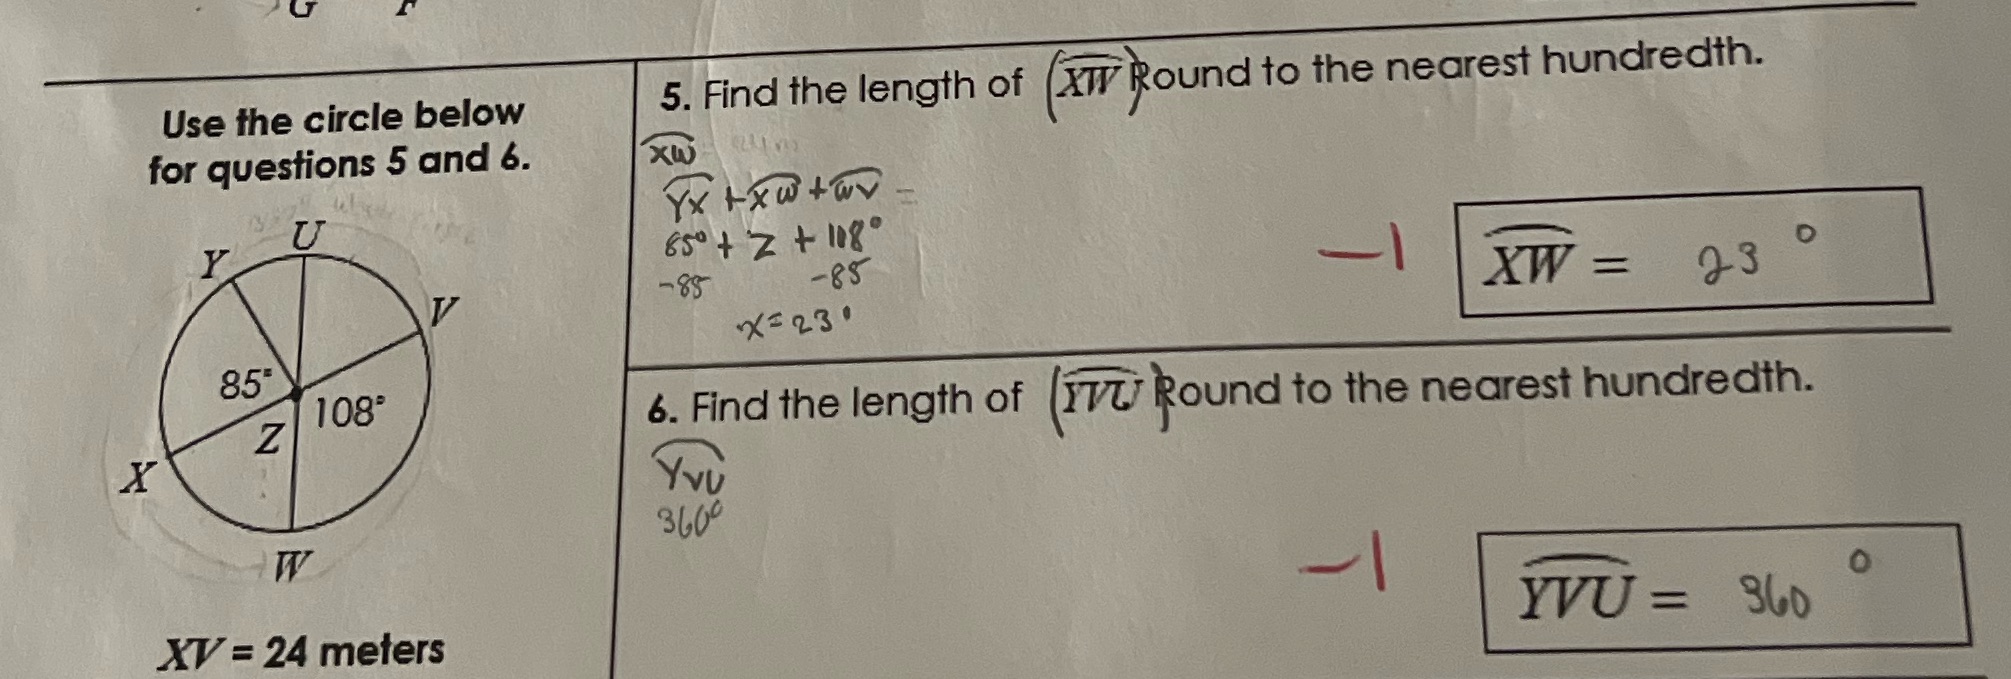 G F
Use the circle below
for questions 5 and 6.
Y U V
85°
108°
Z
X
W
XV = 24 meters
5. Find the length of (XW) Round to the nearest hundredth.
XW 24m
YX + XW + WV =
85° + Z + 108°
-85 -85
x = 23°
-1
XW = 23°
6. Find the length of (YVU) Round to the nearest hundredth.
YVU
360°
-1
YVU = 360°